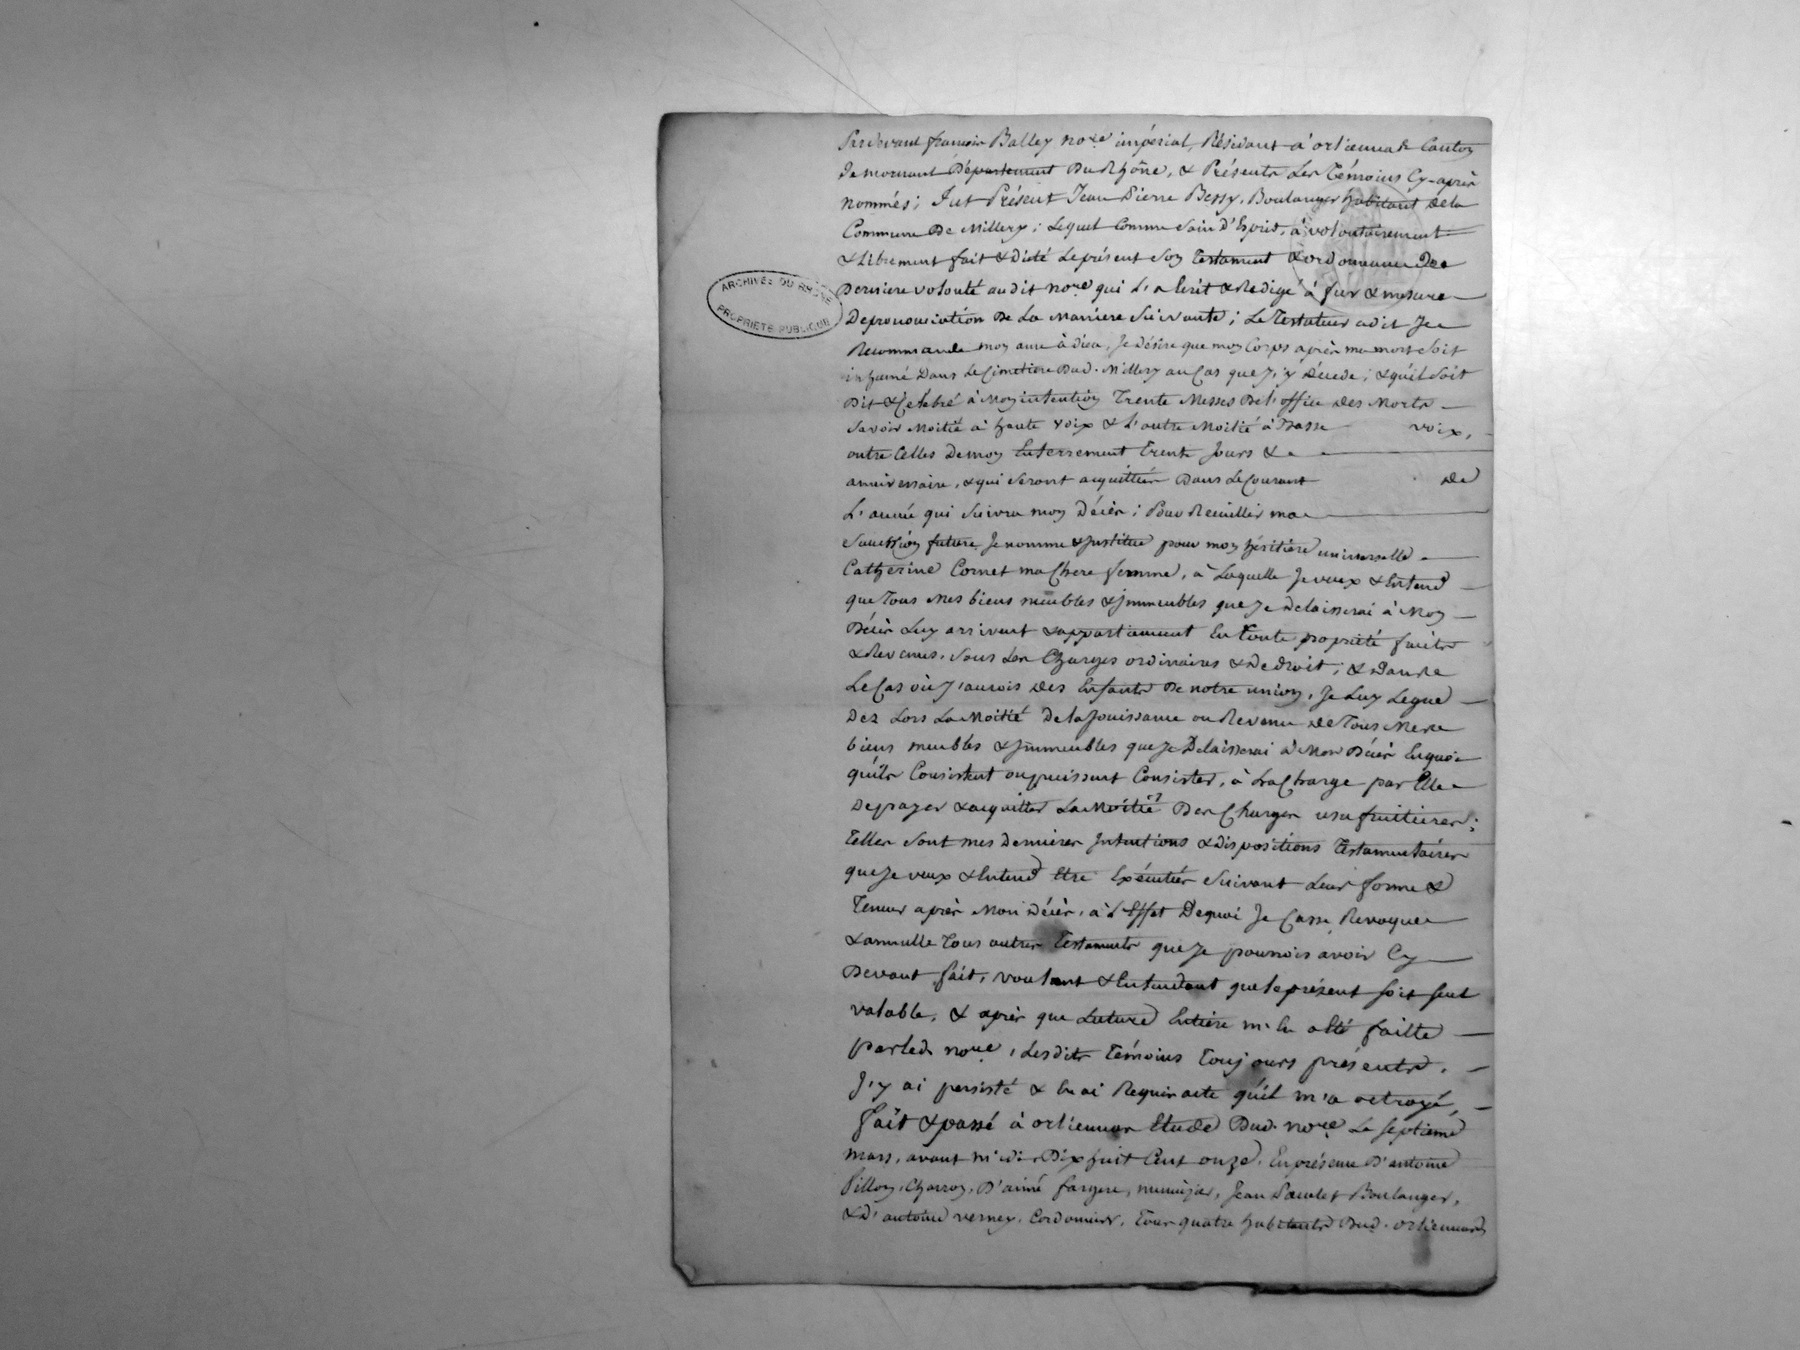 Pardevant françois Balley no.re impérial Résidant à orliennas Canton
de mornant Département Du Rhône, & Présents Les Témoins Cy-après
nommés; fut Présent Jean Pierre Bessy, Boulanger habitant dela
Commune De Millery; Lequel Comme Sain D'Esprit, à volontairement
& Librement fait & dicté Leprésent Son Testament & ordonnance De
Derniere volonté audit no.re qui L'a Ecrit & Redigé à fur & mesure
Deprononciation De La Maniere Suivante; Le Testateur adit Je
Recommande mon ame à Dieu, Je désire que mon Corps après ma mort Soit
inhumé Dans Le Cimetiere Dud. Millery au Cas que J'y décede; & qu'il Soit
Dit & Célebré à Mon intention Trente Messes De L'office des Morts
Savoir Moitié à haute voix & L'autre Moitié à Basse voix,
outre Celles De mon Enterrement Trente Jours &
anniversaire, & qui Seront acquittées Dans Le Courant de
L'année qui Suivra mon Décès; Pour Recueillir ma
Succession future Je nomme & Institue pour mon héritiere universelle
Catherine Cornet ma Chere femme, à Laquelle Je veux & Entend
que Tous Mes biens meubles & Immeubles que Je delaisserai à Mon
Décès Luy arrivent & appartiennent En Toute propriété fruits
& Revenus, Sous Les Charges ordinaires & De droit; & Dans
Le Cas où J'aurois des Enfants De notre union, Je Luy Legue
Dez Lors La Moitié De la Jouissance ou Revenu de Tous Mes
biens meubles & Immeubles que Je Delaisserai à Mon Décès En quoi
qu'ils Consistent ou puissent Consister, à La Charge par Elle
De payer & acquitter La Moitié Des Charges usufruitieres;
Telles Sont mes Dernieres Intentions & dispositions Testamentaires
que Je veux & Entend Etre Exécutées Suivant Leur forme &
Teneur après Mon Décès, à L'Effet De quoi Je Casse Revoque
& annulle Tous autres Testaments que Je pourrois avoir Cy
Devant fait, voulant & Entendant que le présent soit seul
valable, & après que Lecture Entiere m'En a Eté faitte
par led. no.re, Lesdits Témoins Toujours présents,
J'y ai persisté & En ai Requis acte qu'il m'a octroyé,
fait & passé à orliennas Etude Dud. no.re Le septieme
mars, avant midi Dix huit Cent onze, En présence D'antoine
Pillon, Charron, D'aimé fargere, menuisier, Jean Boulanger,
& D'antoine verney, Cordonnier, Tous quatre habitants Dud. orliennas
ARCHIVES DU RHÔNE
PROPRIÉTÉ PUBLIQUE